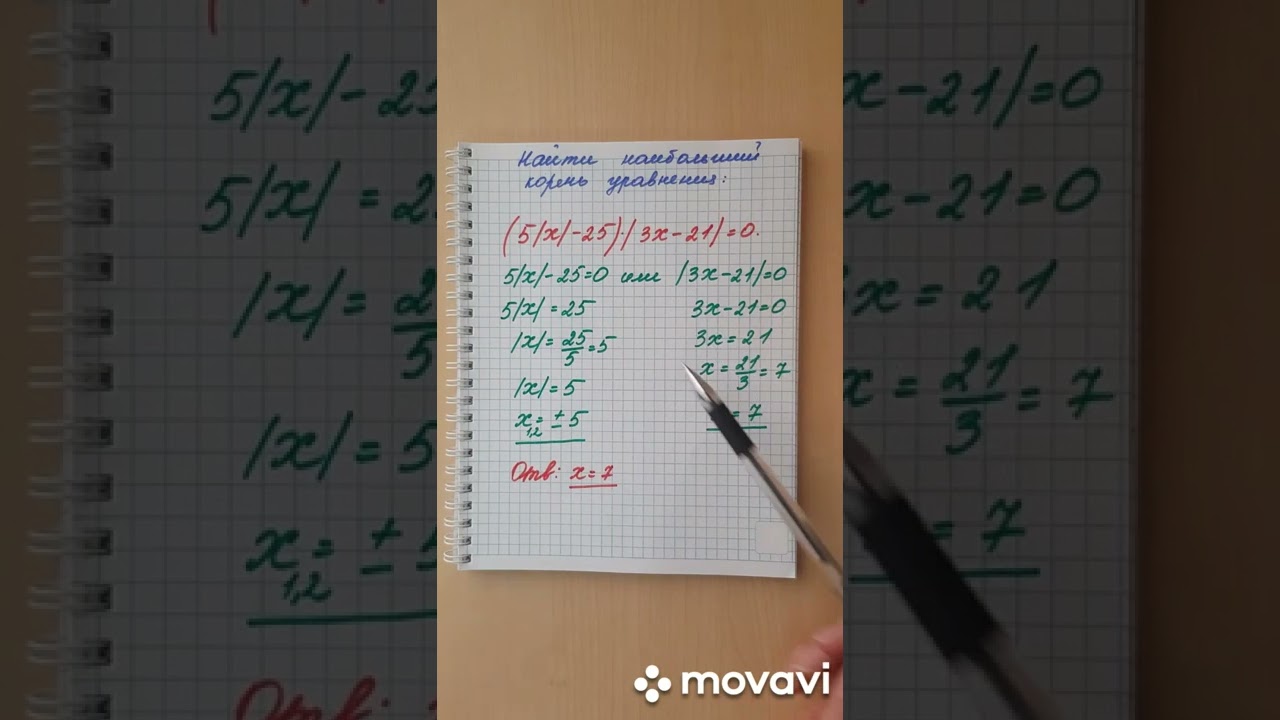 Найти наибольший
корень уравнения:
(5|x|-25)·|3x-21|=0.
5|x|-25=0 или |3x-21|=0
5|x|=25
3x-21=0
|x|=25/5=5
3x=21
|x|=5
x=21/3=7
x1,2=±5
=7
Отв: x=7
movavi